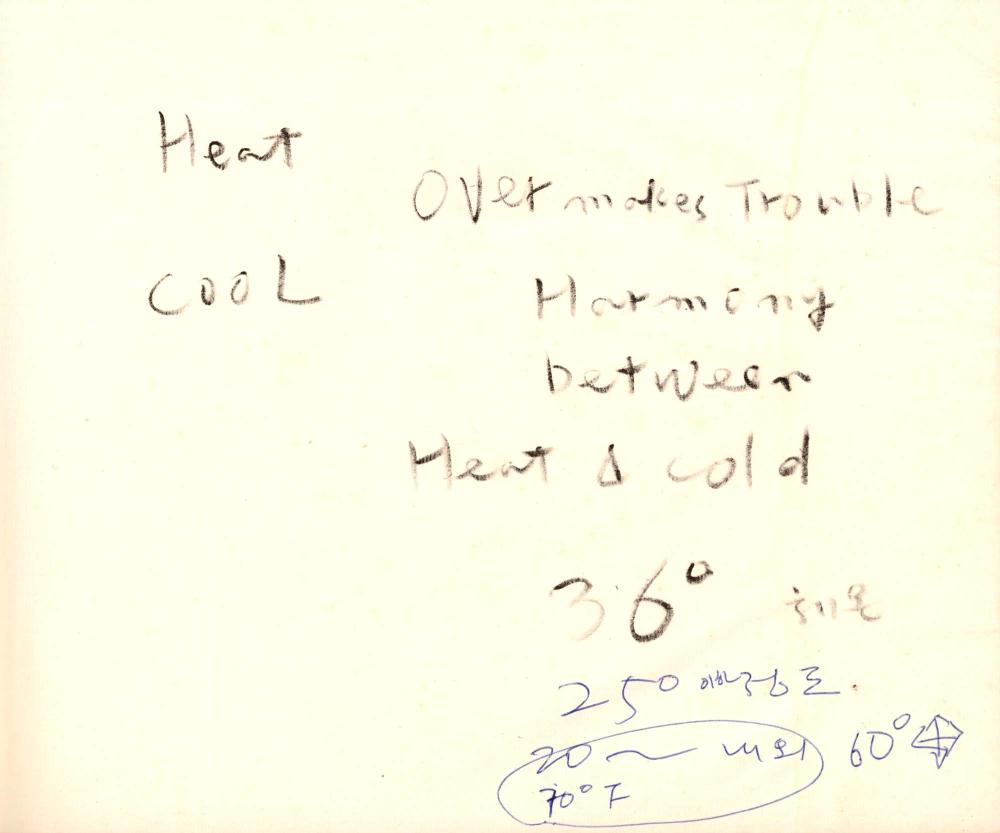 Heat
Over makes Trouble
COOL
Harmony
between
Heat & cold
36° 체온
25° 이하정도.
20~내외 60°
70°F